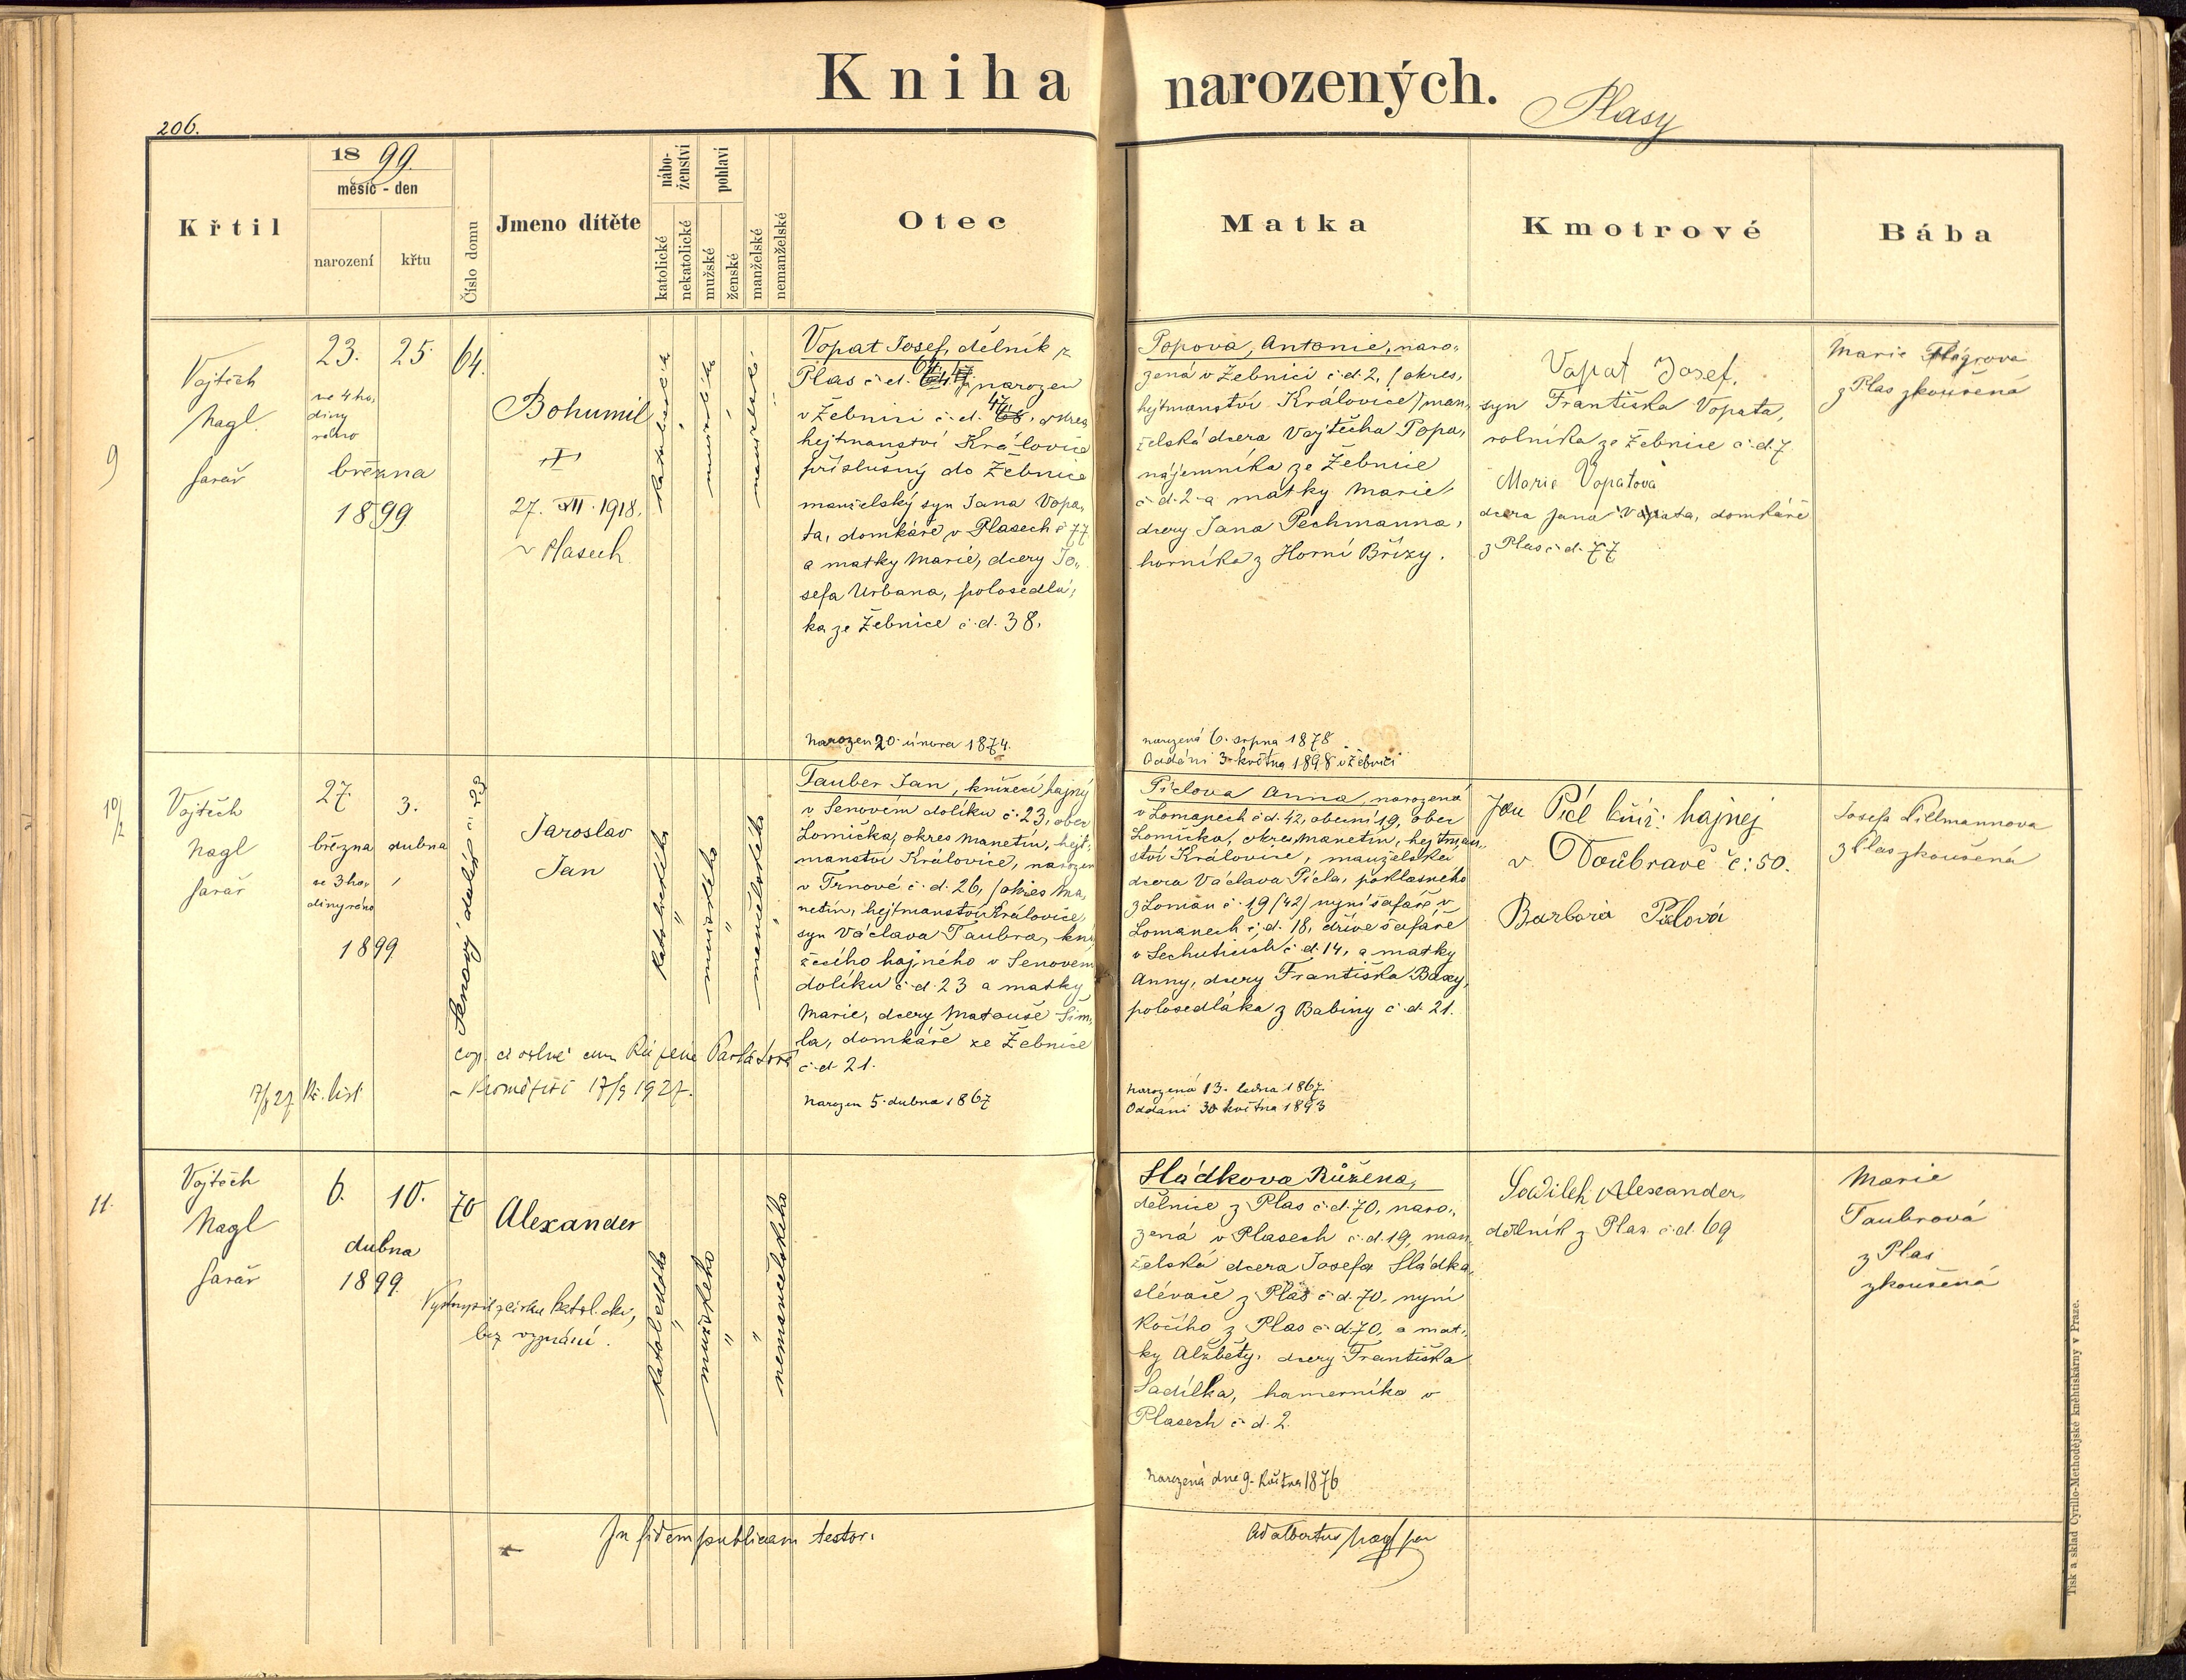 Kniha narozených.
Plasy
206.
Křtil
1899.
měsíc - den
narození
křtu
Číslo domu
Jmeno dítěte
nábo-
ženství
katolické
nekatolické
pohlaví
mužské
ženské
manželské
nemanželské
Otec
Matka
Kmotrové
Bába
9
Vojtěch
Nagl
farář
23.
25.
ve 4 ho,
diny
ráno
března
1899
64.
Bohumil
27. VII. 1918.
v Plasech
katolického
"
mužského
"
manželského
"
Vopat Josef, dělník z
Plas č. d. 64, narozen
v Žebnici č. d. 47, okres
hejtmanství Královice
příslušný do Žebnice
manželský syn Jana Vopa,
ta, domkáře v Plasech č 77
a matky Marie, dcery Jo,,
sefa Urbana, polosedlá,
ka ze Žebnice č. d. 38.
Narozen 20. února 1874.
Popova, Antonie, naro,,
zená v Žebnici č. d. 2, (okres,
hejtmanství Královice) man,
želská dcera Vojtěcha Popa,
nájemníka ze Žebnice
č. d. 2 a matky Marie,
dcery Jana Pechmanna,
horníka z Horní Břízy.
narozená 6. srpna 1878
Oddáni 3. května 1898 v Žebnici
Vopat Josef,
syn Františka Vopata,
rolníka ze Žebnice č. d. 7
Marie Vopatová
dcera Jana Vopata, domkáře
z Plas č. d. 77
Marie
z Plas zkoušená
10/2
Vojtěch
Nagl
farář
27.
3.
března
dubna
ve 3 ho,
diny ráno
1899
Senový dolík č. 23
Jaroslav
Jan
katolického
"
mužského
"
manželského
"
Tauber Jan, knížecí hajný
v Senovém dolíku č. 23, obec
Lomička, okres Manetín, hejt,
manství Královice, narozen
v Trnové č. d. 26, (okres Ma,
netín, hejtmanství Královice,
syn Václava Taubra, kní,
žecího hajného v Senovém
dolíku č. d. 23 a matky
Marie, dcery Matouše Šim,
la, domkáře ze Žebnice
č. d. 21.
Narozen 5. dubna 1867
17/9 27 Kř. list
v Kroměříži 17/9 1927.
Píclova Anna, narozená
v Lomanech č. d. 42, obecní 19, obec
Lomička, okres Manetín, hejtman,,
ství Královice, manželská
dcera Václava Pícla, poklasného
z Loman č. 19 (42) nyní šafáře v
Lomanech č. d. 18, dříve šafáře
v Sechuticích č. d. 14, a matky
Anny, dcery Františka Baxy,
polosedláka z Babiny č. d. 21.
Narozená 13. ledna 1867
Oddáni 30 května 1893
Jan Pícl kníž: hajnej
v Doubravě č: 50.
Barbora Píclová
Josefa Lillmannova
z Plas zkoušená
11.
Vojtěch
Nagl
farář
6.
10.
dubna
1899.
70
Alexander
Vystoupil z církve katolické,
bez vyznání.
katolického
"
mužského
"
"
nemanželského
Sládkova Růžena,
dělnice z Plas č. d. 70, naro,,
zená v Plasech č. d. 19, man,
želská dcera Josefa Sládka,
slévače z Plas č. d. 70, nyní
kočího z Plas č. d. 70, a mat,
ky Alžběty, dcery Františka
Sadílka, hamerníka v
Plasech č. d. 2.
Narozená dne 9. května 1876
Sadílek Alexander,
dělník z Plas č. d. 69
Marie
Taubrová
z Plas
zkoušená
In fidem publicam testor:
Adalbertus Nagl
Tisk a sklad Cyrillo-Methodějské kněhtiskárny v Praze.